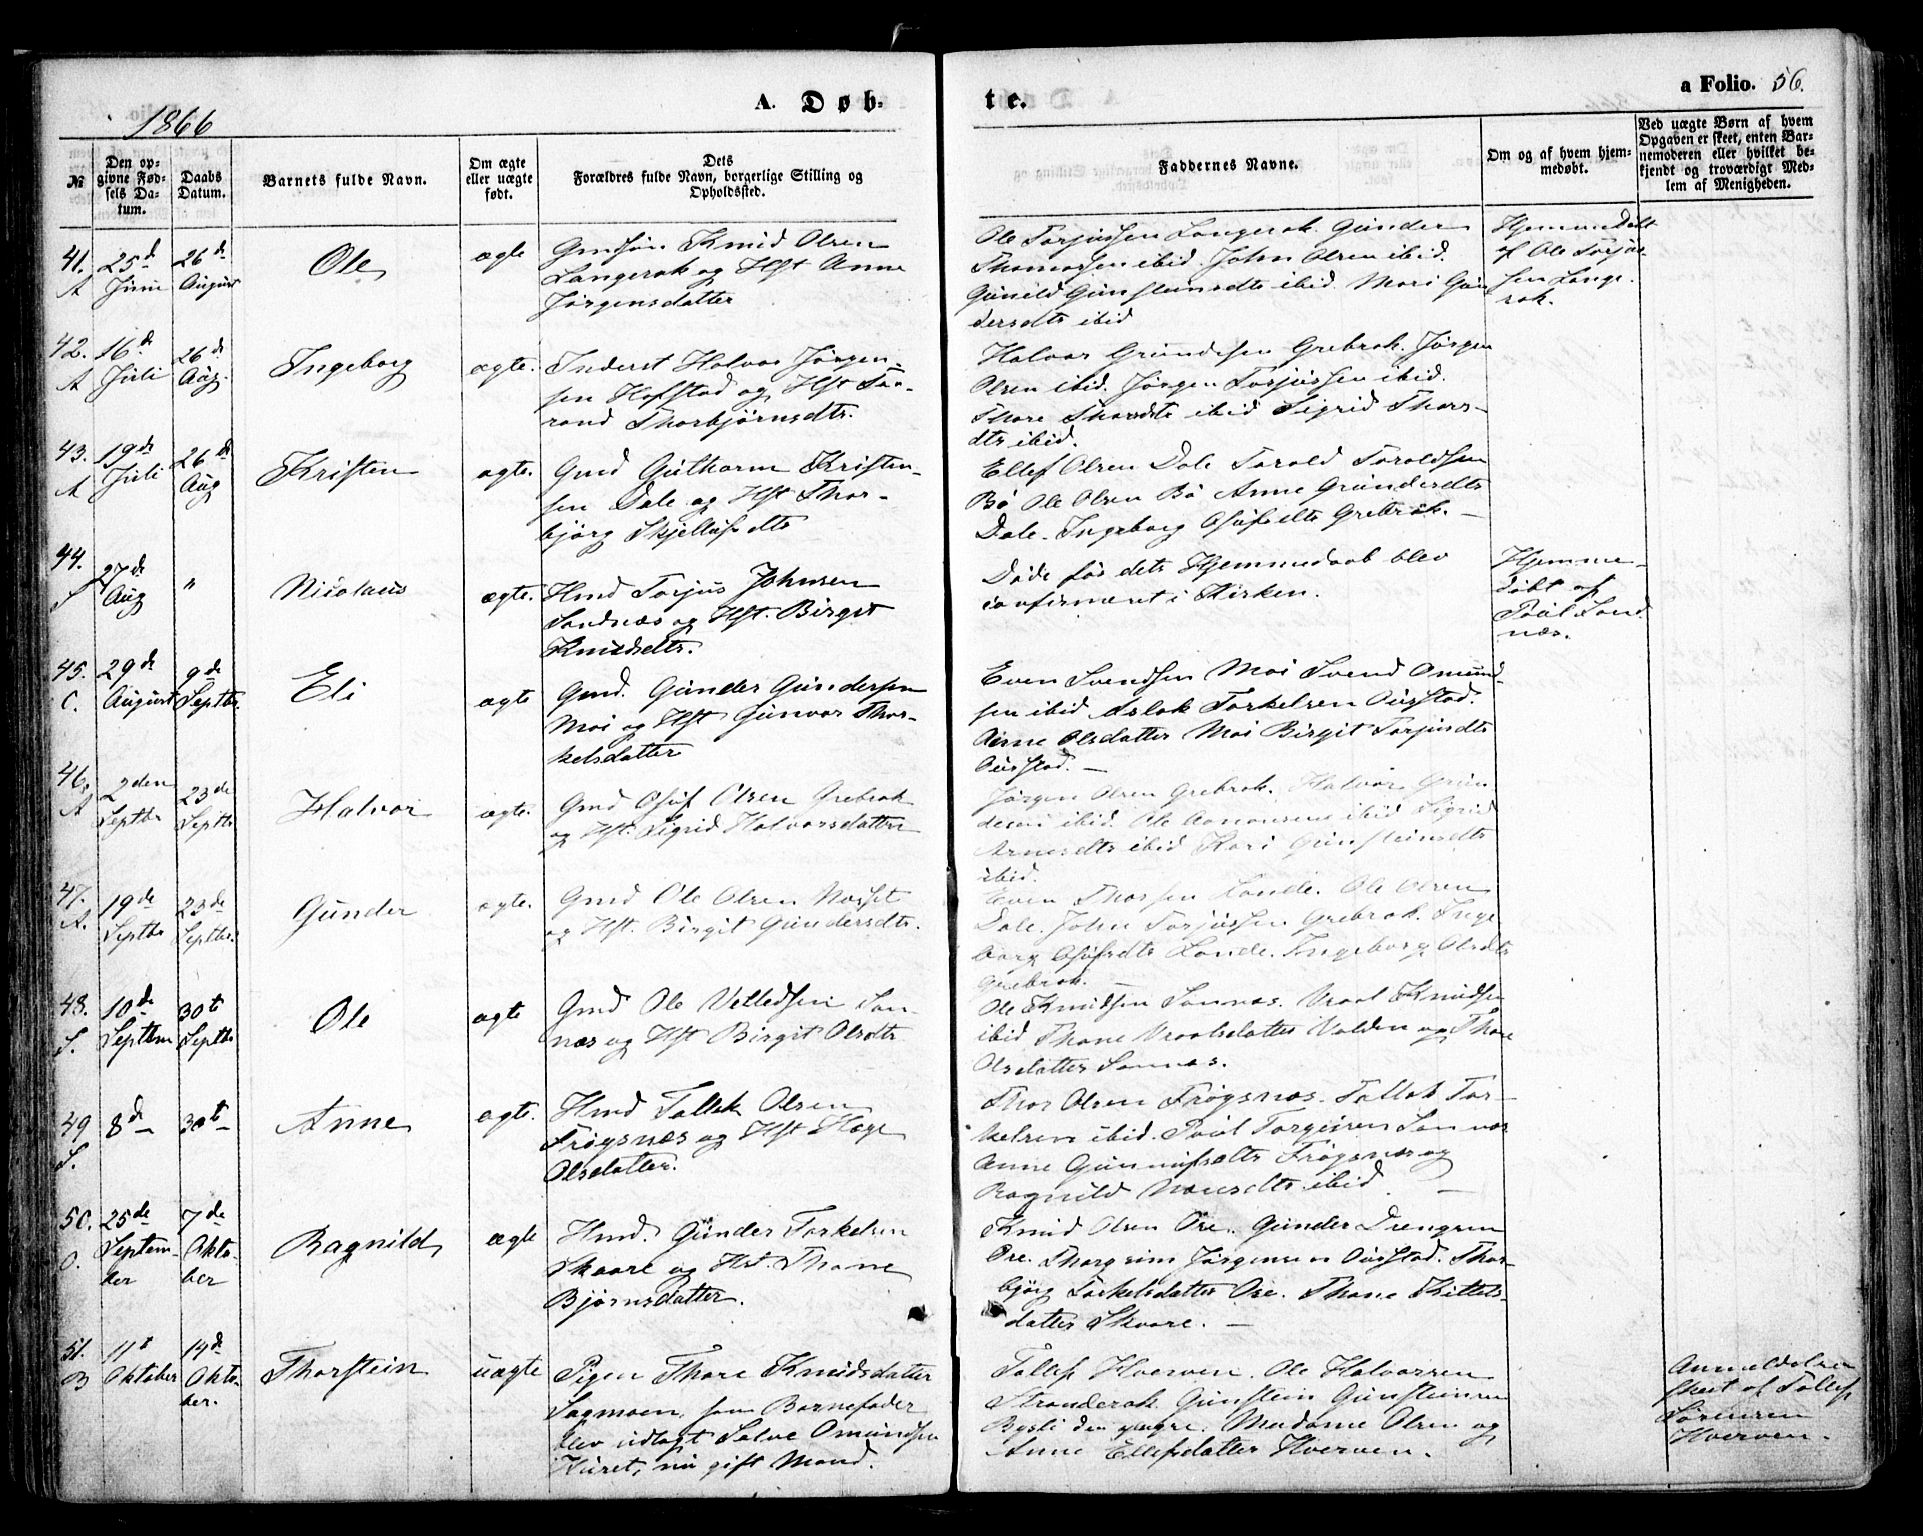 1866
A. Døb-
te.
a Folio. 56.
№
Den op-
givne Fød-
sels Da-
tum.
Daabs
Datum.
Barnets fulde Navn.
Om ægte
eller uægte
født.
Dets
Forældres fulde Navn, borgerlige Stilling og
Opholdssted.
Faddernes Navne.
Om og af hvem hjem-
medøbt.
Ved uægte Børn af hvem
Opgaven er skeet, enten Bar-
nemoderen eller hvilket be-
kjendt og troværdigt Med-
lem af Menigheden.
41.
A
25d
Juni
26de
August
Ole
ægte
Knud Olsen
Langerak og Hst Anne
Jørgensdatter
Ole Torjussen Langerak. Gunder
Thomassen ibid. John Olsen ibid.
Gunild Gunsteinsdtr ibid. Mari Gun
dersdtr ibid
Hjemmedøbt
af Ole Torjus-
sen Lange-
rak.
42.
A
16d
Juli
26de
Aug.
Ingeborg
ægte.
Inderst Halvor Jørgen-
sen Hofstad og Hst Tar-
rand Thorbjørnsdtr.
Halvor Gundersen Grebrok. Jørgen
Olsen ibid. Jørgen Torjussen ibid.
Thore ibid Sigrid Thors-
dtr ibid.
43.
A
19de
Juli
26de
Aug
Kristen
ægte.
Gmd Guthorm Kristen-
sen Dale og Hst Thor-
bjørg Skjellufsdtr
Ellef Olsen Dale Torald Toraldsen
Bø Ole Olsen Bø Anne Gundersdtr
Dale. Ingeborg Osufsdtr Grebrok. —
44.
S
27de
Aug
"
Nicolaus
ægte.
Hmd Torjus Johnsen
Sandnæs og Hst. Birgit
Knudsdtr.
Døde før dets Hjemmedaab blev
confirmeret i Kirken.
Hjemme-
døbt af
Paul Sand
næs.
45.
C.
29de
August
9de
Septbr.
Eli
ægte
Gmd. Gunder Gundersen
Moi og Hst Gunvor Thor-
kelsdatter
Even Svendsen Moi Svend Omund-
sen ibid Aslak Torkelsen Ousstad.
Anne Olsdatter Moi Birgit Torjusdtr
Ousstad. —
46.
A
2den
Septbr
23de
Septbr
Halvor
ægte.
Gmd Osuf Olsen Grebrok
og Hst. Sigrid Halvorsdatter
Jørgen Olsen Grebrok. Halvor Gun
dersen ibid. Ole Aanonsen ibid Sigrid
Arnesdtr ibid Kari Gunsteinsdtr
ibid.
47.
A.
19de
Septbr
23de
Septbr.
Gunder
ægte.
Gmd Ole Olsen Nesset
og Hst. Birgit Gundersdtr.
Even Thorsen Lande. Ole Olsen
Dale. John Torjussen Grebrok. Inge
borg Osufsdtr Lande. Ingeborg Olsdtr
Grebrok. —
48.
S.
10de
Septem
30te
Septbr
Ole
ægte
Gmd Ole San-
næs og Hst Birgit Olsdtr
Ole Knudsen Sannæs. Vraal Knudsen
ibid Thone Vraalsdatter Valden og Thone
Olsdatter Sannæs.
49
S.
8de
30te
Anne
ægte.
Hmd Tallek Olsen
Frøysnæs og Hst Hæge
Olsdatter.
Thor Olsen Frøysnæs. Tallak Tor-
kelsen ibid. Paul Torgeirsen Sannæs
Anne Gunnufsdtr Frøysnæs og
Ragnild ibid. —
50.
O.
25de
Septem-
ber
7de
Okto-
ber
Ragnild
ægte
Hmd. Gunder Torkelsen
Skaare og Hst. Thone
Bjørnsdatter.
Knud Olsen Ose. Gunder Drengsen
Ose. Thorgrim Jørgensen Ousstad. Thor-
bjørg Torkelsdatter Ose. Thone Kittels-
datter Skaare. —
51.
B
11t
Oktober
14de
Okto-
ber.
Thorstein
uægte
Pigen Thore Knudsdatter
Sagmoen, som Barnefader
blev udlagt Salve Omundsen
nu gift Mand.
Tallef Hverven. Ole Halvorsen
Stranderak Gunstein Gunsteinsen
Bygli den yngre. Madame Olsen og
Anne Ellefsdatter Hverven.
Anmeldelsen
skeet af Tallef
Sørensen
Hverven.